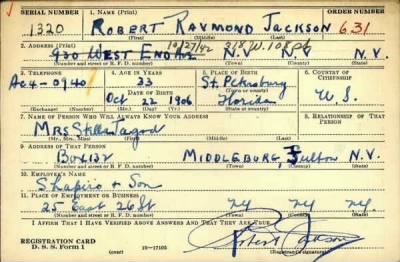 SERIAL NUMBER 1. NAME (Print) ORDER NUMBER
1320 ROBERT RAYMOND JACKSON 631
2. ADDRESS (Print) 10/27/42
930 WEST END AV. N.Y. N.Y. N.Y.
(Number and street or R. F. D. number) (Town) (County) (State)
3. TELEPHONE 4. AGE IN YEARS 5. PLACE OF BIRTH 6. COUNTRY OF CITIZENSHIP
AC4-0940 33 St. Petersburg
DATE OF BIRTH (Town or county)
Oct 22 1906 Florida U.S.
(Exchange) (Number) (Mo.) (Day) (Yr.) (State or country)
7. NAME OF PERSON WHO WILL ALWAYS KNOW YOUR ADDRESS 8. RELATIONSHIP OF THAT PERSON
Mrs Stella
(Mr., Mrs., Miss)
9. ADDRESS OF THAT PERSON
Box 132 MIDDLEBURG, N.Y.
(Number and street or R. F. D. number) (Town) (County) (State)
10. EMPLOYER'S NAME
Shapiro + Son
11. PLACE OF EMPLOYMENT OR BUSINESS
25 East 26 St NY NY NY.
(Number and street or R. F. D. number) (Town) (County) (State)
I AFFIRM THAT I HAVE VERIFIED ABOVE ANSWERS AND THAT THEY ARE TRUE.
REGISTRATION CARD
D. S. S. Form 1 (over) 16—17105 Robert Jackson